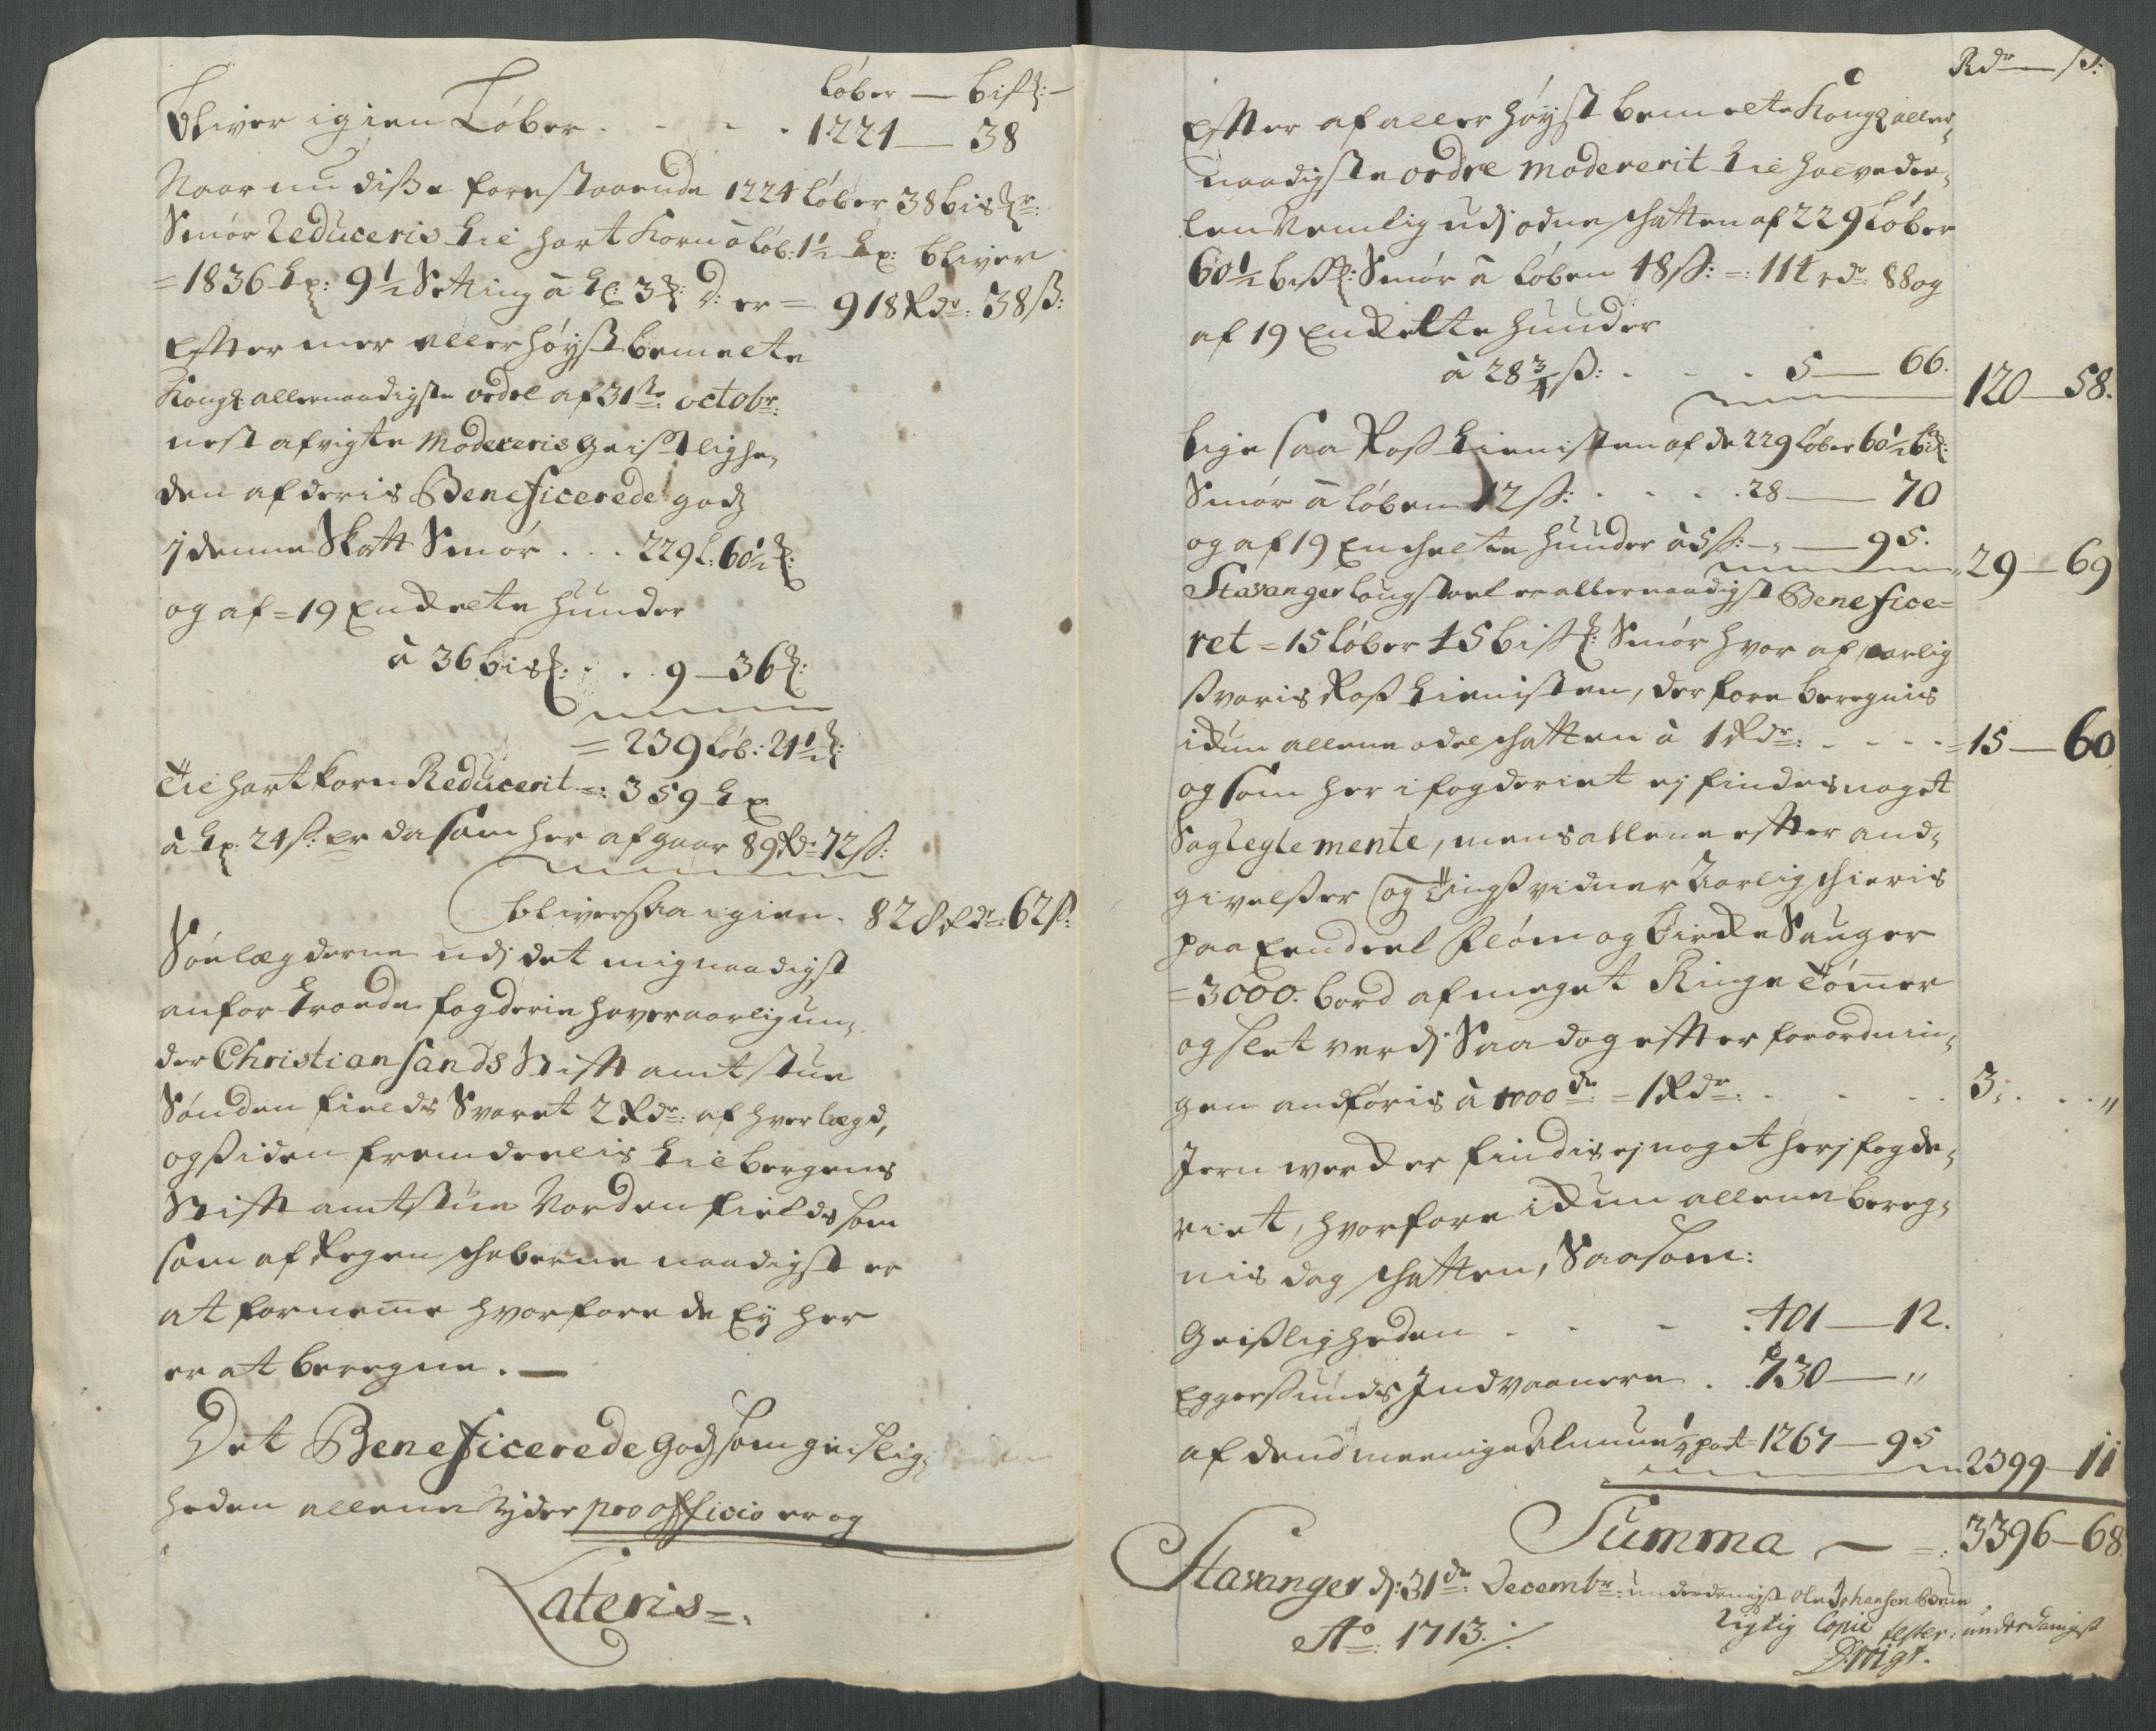 Løber — bisk:
Bliver igien Løber . . . . 1224 — 38
Naar nu disse forestaaende 1224 løber 38 bisk:
Smør Reduceris til hart korn à løb: 1½ tp: bliver
= 1836 tp: 9½ Setting à tp: 3 D: er = 918 Rdr: 38 s:
Effter mer allerhøyst bemelte
Kongl allernaadigste ordre af 31te octobr:
nest afvigte Modereris Geistlighe,
den af deris Beneficerede godz
i denne Skatt Smør . . . 229 l: 60½
og af = 19 Enckelte Huuder
à 36 bisk: . . 9 — 36
= 239 løb: 21½
Til hart korn Reducerit =: 359 tp
à tp: 24 s: er da som her afgaar 89 Rdr 72 s:
bliver saa igien . 828 Rdr: 62 s:
Søelægderne udj det mig naadigst
anfortroede fogderie haver aarlig un,
der Christiansands Stifft amtstue
Sønden fields Svaret 2 Rdr: af hver lægd,
og siden fremdeelis til bergens
Stifft amtstue Norden fields som
som af Regenschaberne naadigst er
at fornemme hvorfore de Ey her
er at beregne. —
Det Beneficerede Godz som geistlig,
heden allene Nyder pro officio er og
Lateris =.
Rdr — s:
Effter af allerhøyst bemelte Kongl aller,
naadigste ordre Modererit til halvedee,
len Nemlig udj odne schatten af 229 Løber
60½ bisk: Smør à løben 48 s: =: 114 rdr: 88 og
af 19 Enckelte Huuder
à 28¾ s: . . . 5 — 66.
120 — 58.
lige saa Ross tienisten af de 229 løber 60½ bisk:
Smør à løben 12 s: . . . . 28 — 70
og af 19 Enchelte Huuder à 5 s: — „ — 95.
29 — 69
Stavanger laugstoel er allernaadigst Benefice=
ret = 15 løber 45 bisk: Smør hvor af aarlig
svaris Ross tienisten, der fore beregnis
ickun allene odel schatten à 1 Rdr: . . . . = 15 — 60
og som her i fogderiet ej findes noget
Sag Reglemente, mens allene effter and,
givelsser og Tingsvidner Aarlig schieris
paa Eendeel Flom og Becke Sauger
= 3000. bord af meget Ringe Tømer
og slet verdj Saa dog effter forordnin,
gen andføris à 1000de = 1 Rdr: . . . . 3: . . „
Jern wercker findis ej noget herj fogde,
riet, hvorfore ickun allene bereg,
nis dag schatten, Saasom:
Geistligheden . . . . 401 — 12.
Eggersunds Indvaanere . . 730 — „
af dend meenige Almue ¼ part 1267 — 95
2399 — 11
Summa — =: 3396 — 68.
Stavanger d: 31de Decembr: underdanigst Ole Johansen Bruun
Ao: 1713.
Rigtig Copie tester: underdanigst